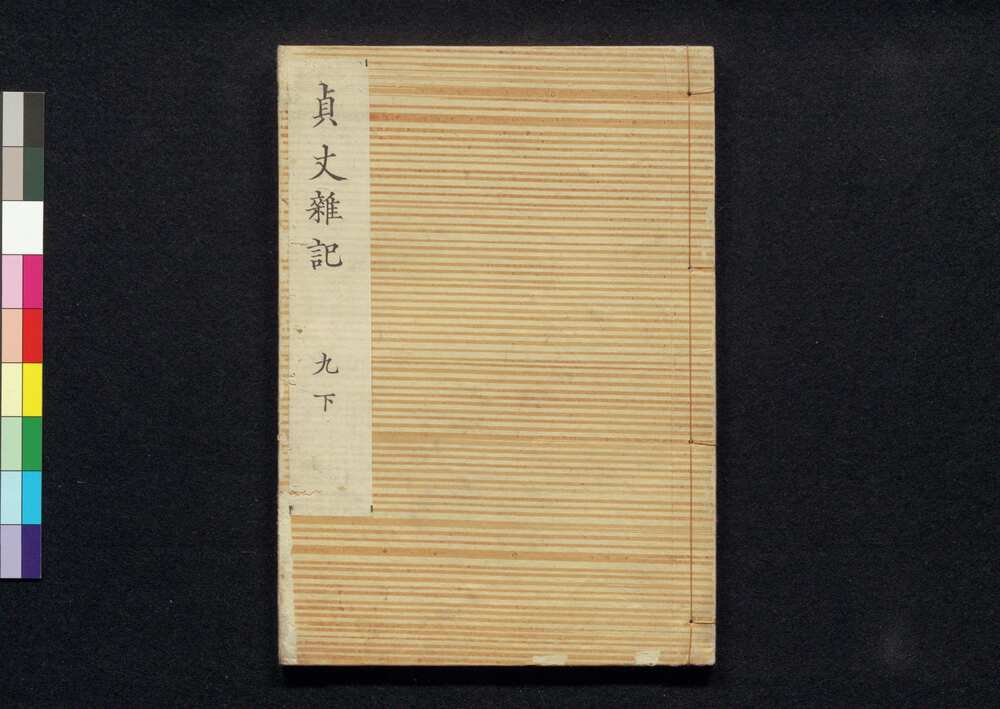 貞丈雜記
九下